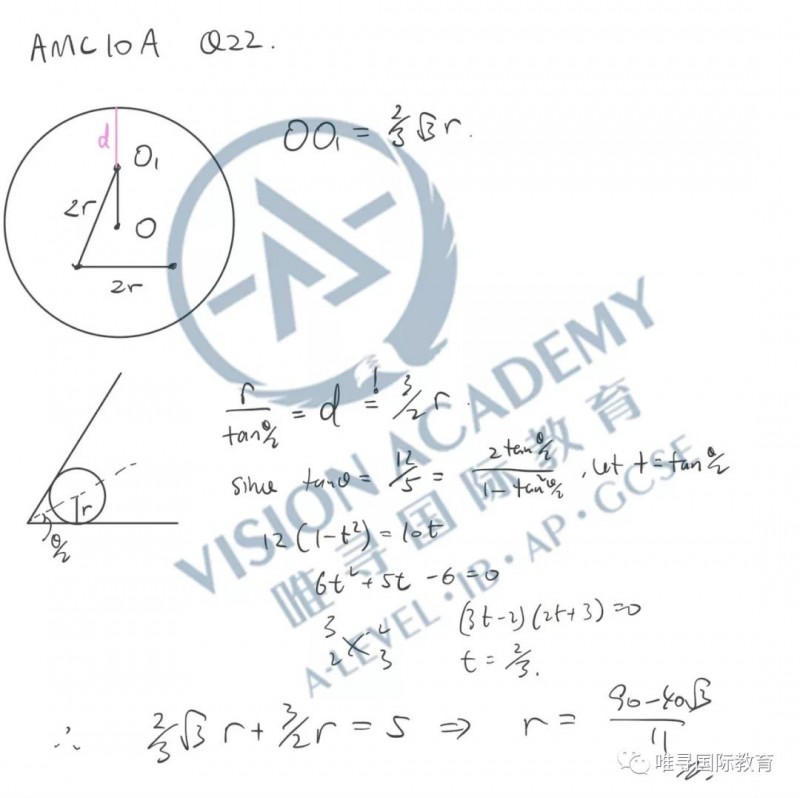 AMC10A Q22.
d
O₁
2r
O
2r
OO₁ = 2/3 √3 r.
r/tan θ/2 = d =! 3/2 r.
since tanθ = 12/5 = 2tan θ/2 / 1-tan² θ/2 , let t = tan θ/2
r
θ/2
12(1-t²) = 10t
6t² + 5t - 6 = 0
3 -2
2 3
(3t-2)(2t+3) = 0
t = 2/3.
∴ 2/3 √3 r + 3/2 r = 5 ⇒ r = 90-40√3 / 11
VISION ACADEMY
唯寻国际教育
A-LEVEL·IB·AP·GCSE
唯寻国际教育